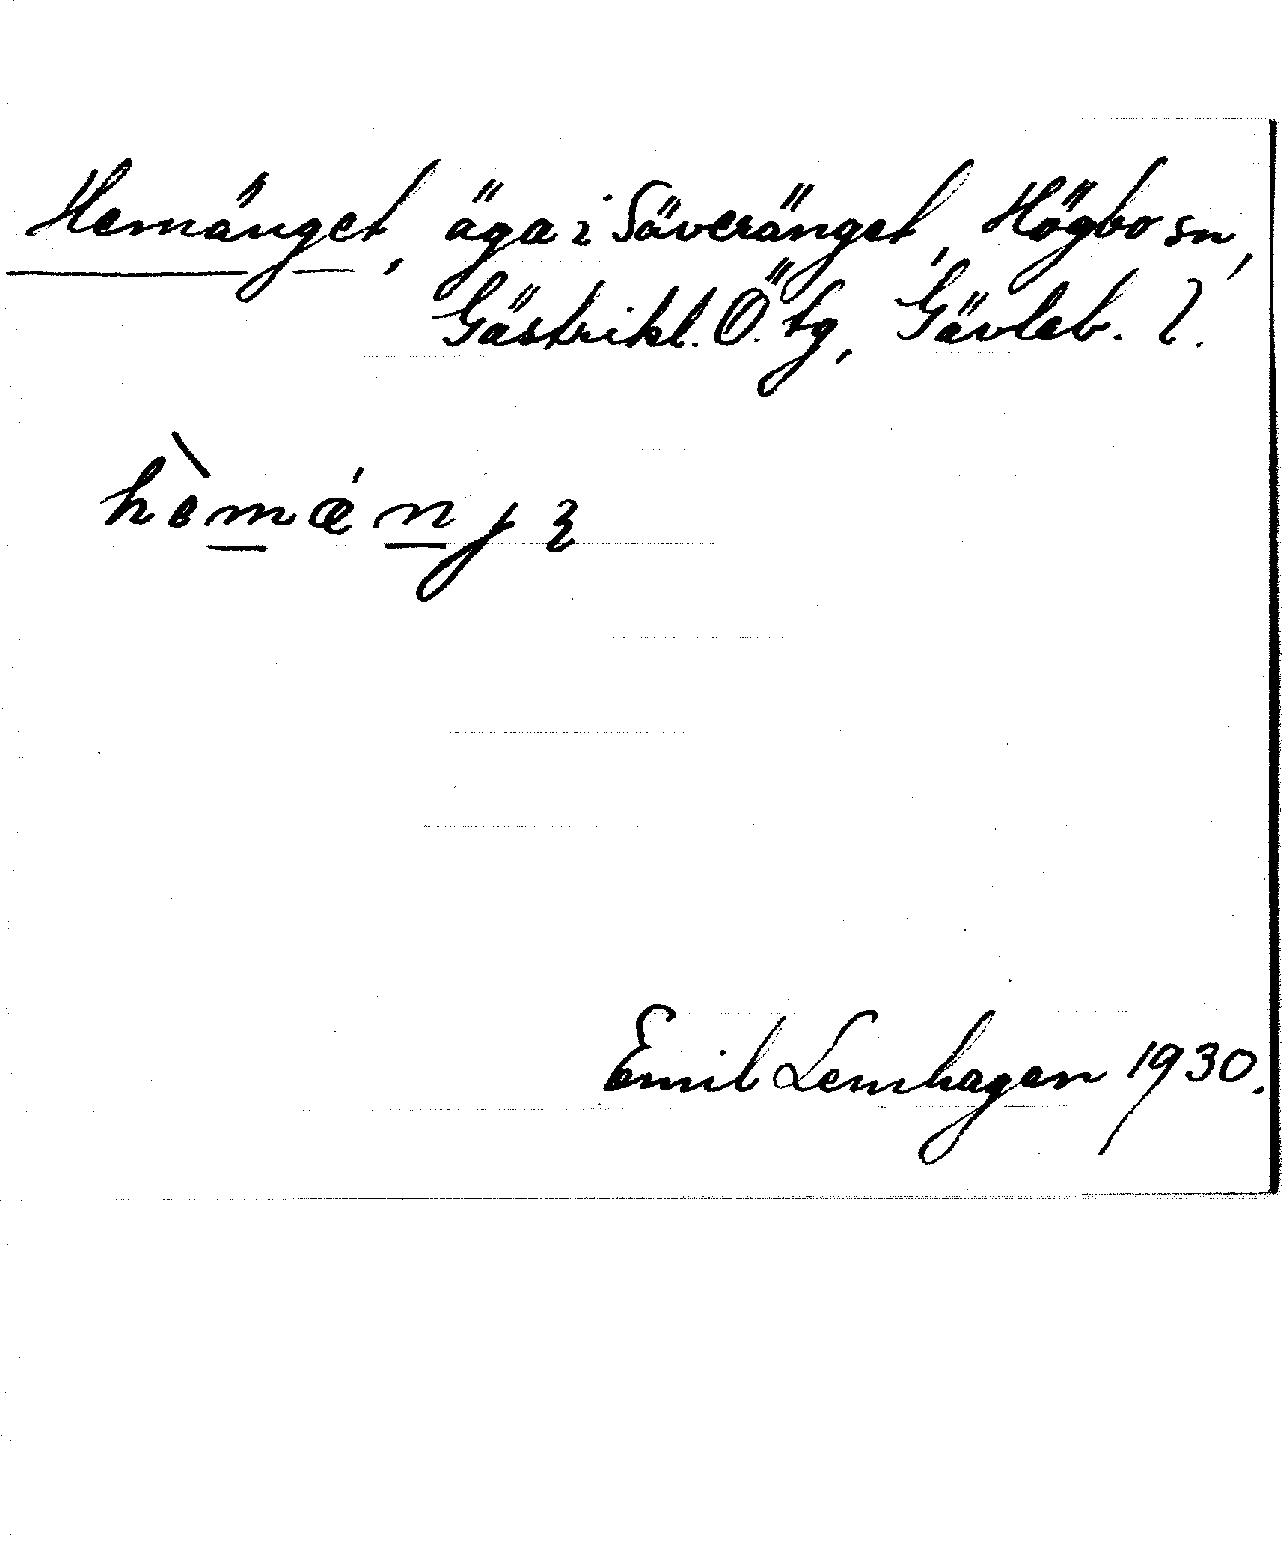 Hemänget, äga i Säveränget, Högbo sn,
Gästrikl. Ö. tg, Gävleb. l.
hèmǽnjɜ
Emil Lemhagen 1930.